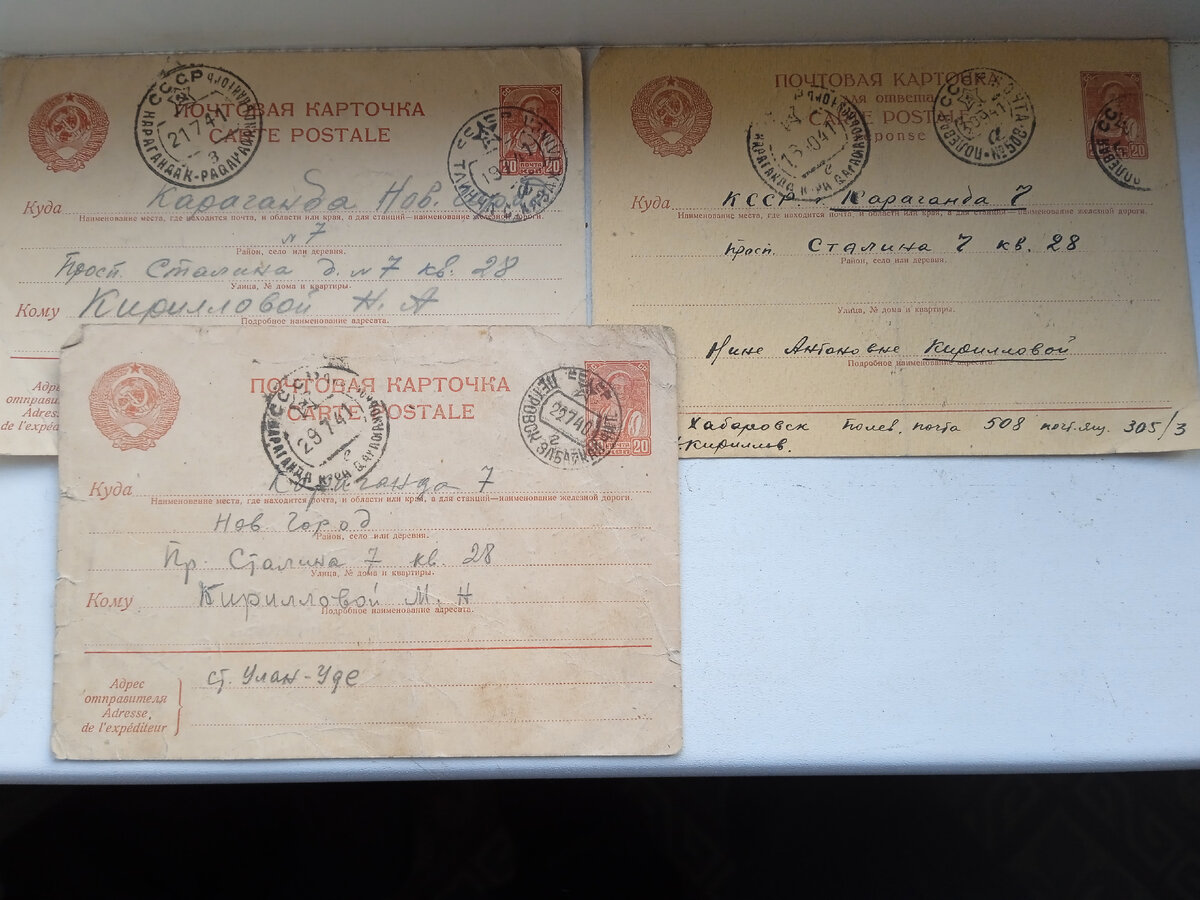 ПОЧТОВАЯ КАРТОЧКА
CARTE POSTALE
СССР
21 7 41
КАРАГАНДА
20 20
ПОЧТА
Куда Караганда Нов.
Наименование места, где находится почта, и области или края, а для станций—наименование железной дороги.
№ 7
Район, село или деревня.
Просп. Сталина д. № 7 кв. 28
Улица, № дома и квартиры.
Кому Кирилловой Н. А
Подробное наименование адресата.
Адрес
отправи
Adresse
de l'expéd
ПОЧТОВАЯ КАРТОЧКА
для ответа
CARTE POSTALE
réponse
КАРАГАНДА
20
Куда КССР Караганда 7
Наименование места, где находится почта, и области или края, а для станций—наименование железной дороги.
просп. Сталина 7 кв. 28
Район, село или деревня.
Улица, № дома и квартиры.
Нине Антоновне Кирилловой
Подробное наименование адресата.
Хабаровск Полев. почта 508 почт. ящ. 305/3
Кириллов.
ПОЧТОВАЯ КАРТОЧКА
CARTE POSTALE
СССР
29 7 41
КАРАГАНДА
20
Куда Караганда 7
Наименование места, где находится почта, и области или края, а для станций—наименование железной дороги.
Нов. город
Район, село или деревня.
Пр. Сталина 7 кв. 28
Улица, № дома и квартиры.
Кому Кирилловой М. Н
Подробное наименование адресата.
Адрес
отправителя
Adresse
de l'expéditeur
ст. Улан-Уде